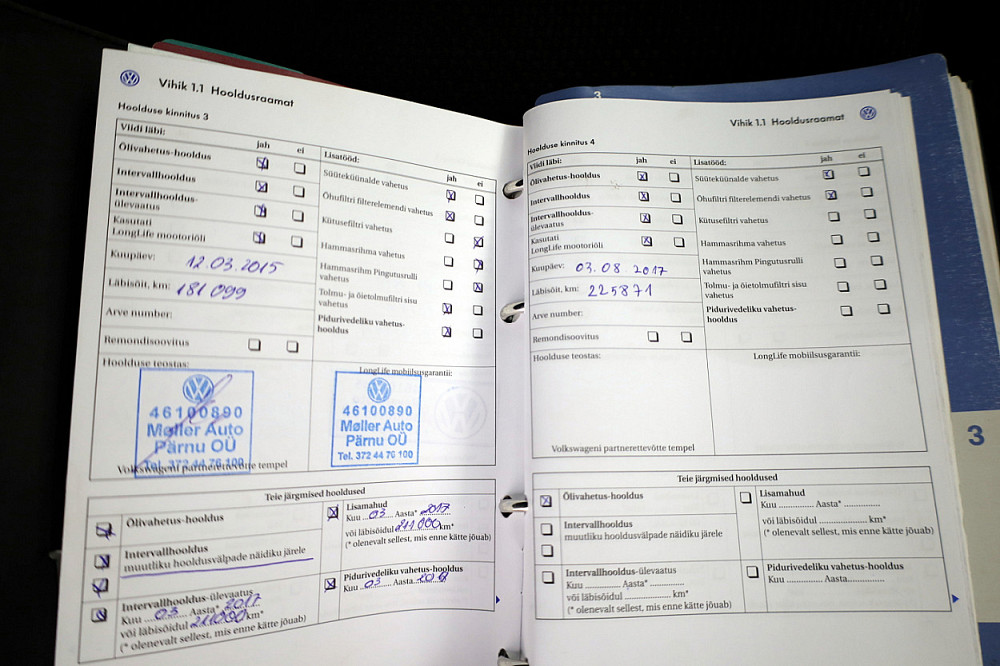 Vihik 1.1 Hooldusraamat
Hoolduse kinnitus 3
Viidi läbi:
jah ei
Õlivahetus-hooldus
Intervallhooldus
Intervallhooldus-
ülevaatus
Kasutati
LongLife mootoriõli
Kuupäev: 12.03.2015
Läbisõit, km: 181 099
Arve number:
Remondisoovitus
Lisatööd:
jah ei
Süüteküünalde vahetus
Õhufiltri filterelemendi vahetus
Kütusefiltri vahetus
Hammasrihma vahetus
Hammasrihm Pingutusrulli
vahetus
Tolmu- ja õietolmufiltri sisu
vahetus
Pidurivedeliku vahetus-
hooldus
Hoolduse teostas:
46100890
Møller Auto
Pärnu OÜ
Tel. 372 44 76 100
Volkswageni partnerettevõtte tempel
LongLife mobiilsusgarantii:
46100890
Møller Auto
Pärnu OÜ
Tel. 372 44 76 100
Teie järgmised hooldused
Õlivahetus-hooldus
Intervallhooldus
muutliku hooldusvälpade näidiku järele
Intervallhooldus-ülevaatus
Kuu 03 Aasta* 2017
või läbisõidul 211000 km*
(* olenevalt sellest, mis enne kätte jõuab)
Lisamahud
Kuu 03 Aasta* 2017
või läbisõidul 211000 km*
(* olenevalt sellest, mis enne kätte jõuab)
Pidurivedeliku vahetus-hooldus
Kuu 03 Aasta
3
Vihik 1.1 Hooldusraamat
Hoolduse kinnitus 4
Viidi läbi:
jah ei
Õlivahetus-hooldus
Intervallhooldus
Intervallhooldus-
ülevaatus
Kasutati
LongLife mootoriõli
Kuupäev: 03.08.2017
Läbisõit, km: 225871
Arve number:
Remondisoovitus
Lisatööd:
jah ei
Süüteküünalde vahetus
Õhufiltri filterelemendi vahetus
Kütusefiltri vahetus
Hammasrihma vahetus
Hammasrihm Pingutusrulli
vahetus
Tolmu- ja õietolmufiltri sisu
vahetus
Pidurivedeliku vahetus-
hooldus
Hoolduse teostas:
Volkswageni partnerettevõtte tempel
LongLife mobiilsusgarantii:
Teie järgmised hooldused
Õlivahetus-hooldus
Intervallhooldus
muutliku hooldusvälpade näidiku järele
Intervallhooldus-ülevaatus
Kuu ............ Aasta* ...............
või läbisõidul .................... km*
(* olenevalt sellest, mis enne kätte jõuab)
Lisamahud
Kuu ............ Aasta* ...............
või läbisõidul .................... km*
(* olenevalt sellest, mis enne kätte jõuab)
Pidurivedeliku vahetus-hooldus
Kuu ............ Aasta...............
3